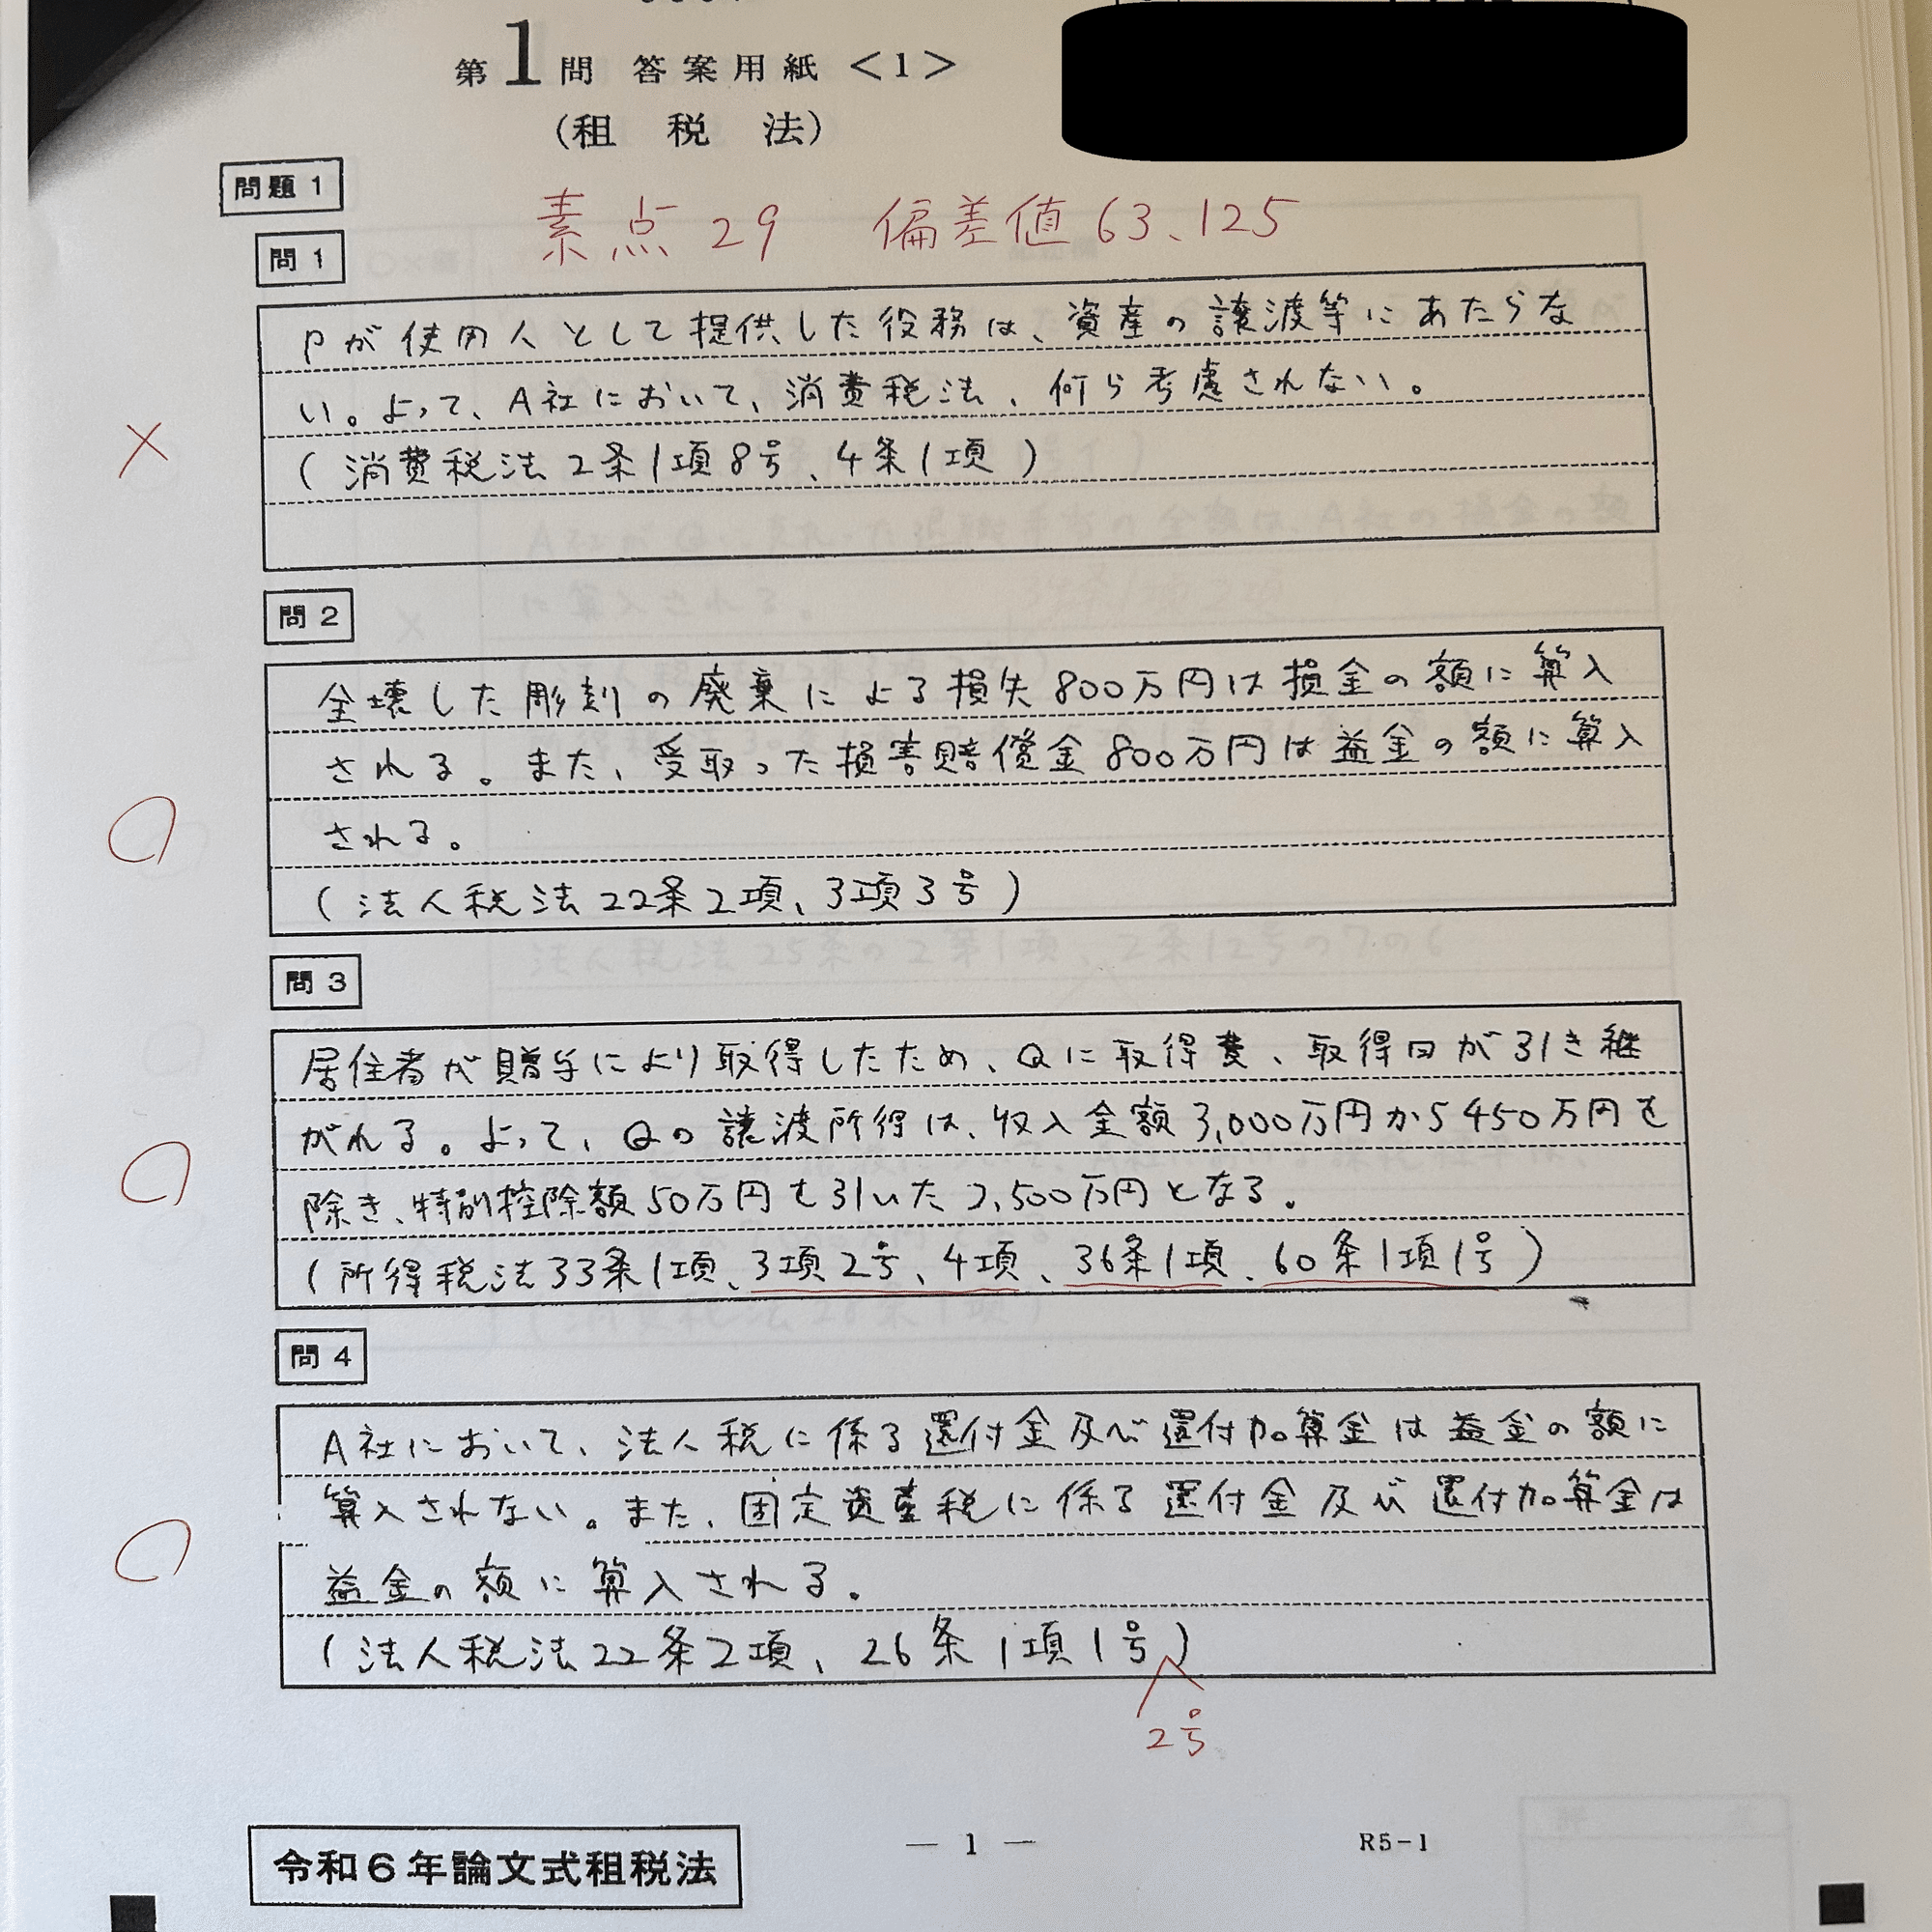 第1問 答案用紙 <1>
(租税法)
問題1
素点29 偏差値63.125
問1
Pが使用人として提供した役務は、資産の譲渡等にあたらな
い。よって、A社において、消費税法、何ら考慮されない。
(消費税法2条1項8号、4条1項)
×
問2
全壊した彫刻の廃棄による損失800万円は損金の額に算入
される。また、受取った損害賠償金800万円は益金の額に算入
される。
(法人税法22条2項、3項3号)
問3
居住者が贈与により取得したため、Qに取得費、取得日が引き継
がれる。よって、Qの譲渡所得は、収入金額3,000万円から450万円を
除き、特別控除額50万円を引いた2,500万円となる。
(所得税法33条1項、3項2号、4項、36条1項、60条1項1号)
問4
A社において、法人税に係る還付金及び還付加算金は益金の額に
算入されない。また、固定資産税に係る還付金及び還付加算金は
益金の額に算入される。
(法人税法22条2項、26条1項1号)
2号
令和6年論文式租税法
— 1 —
R5-1